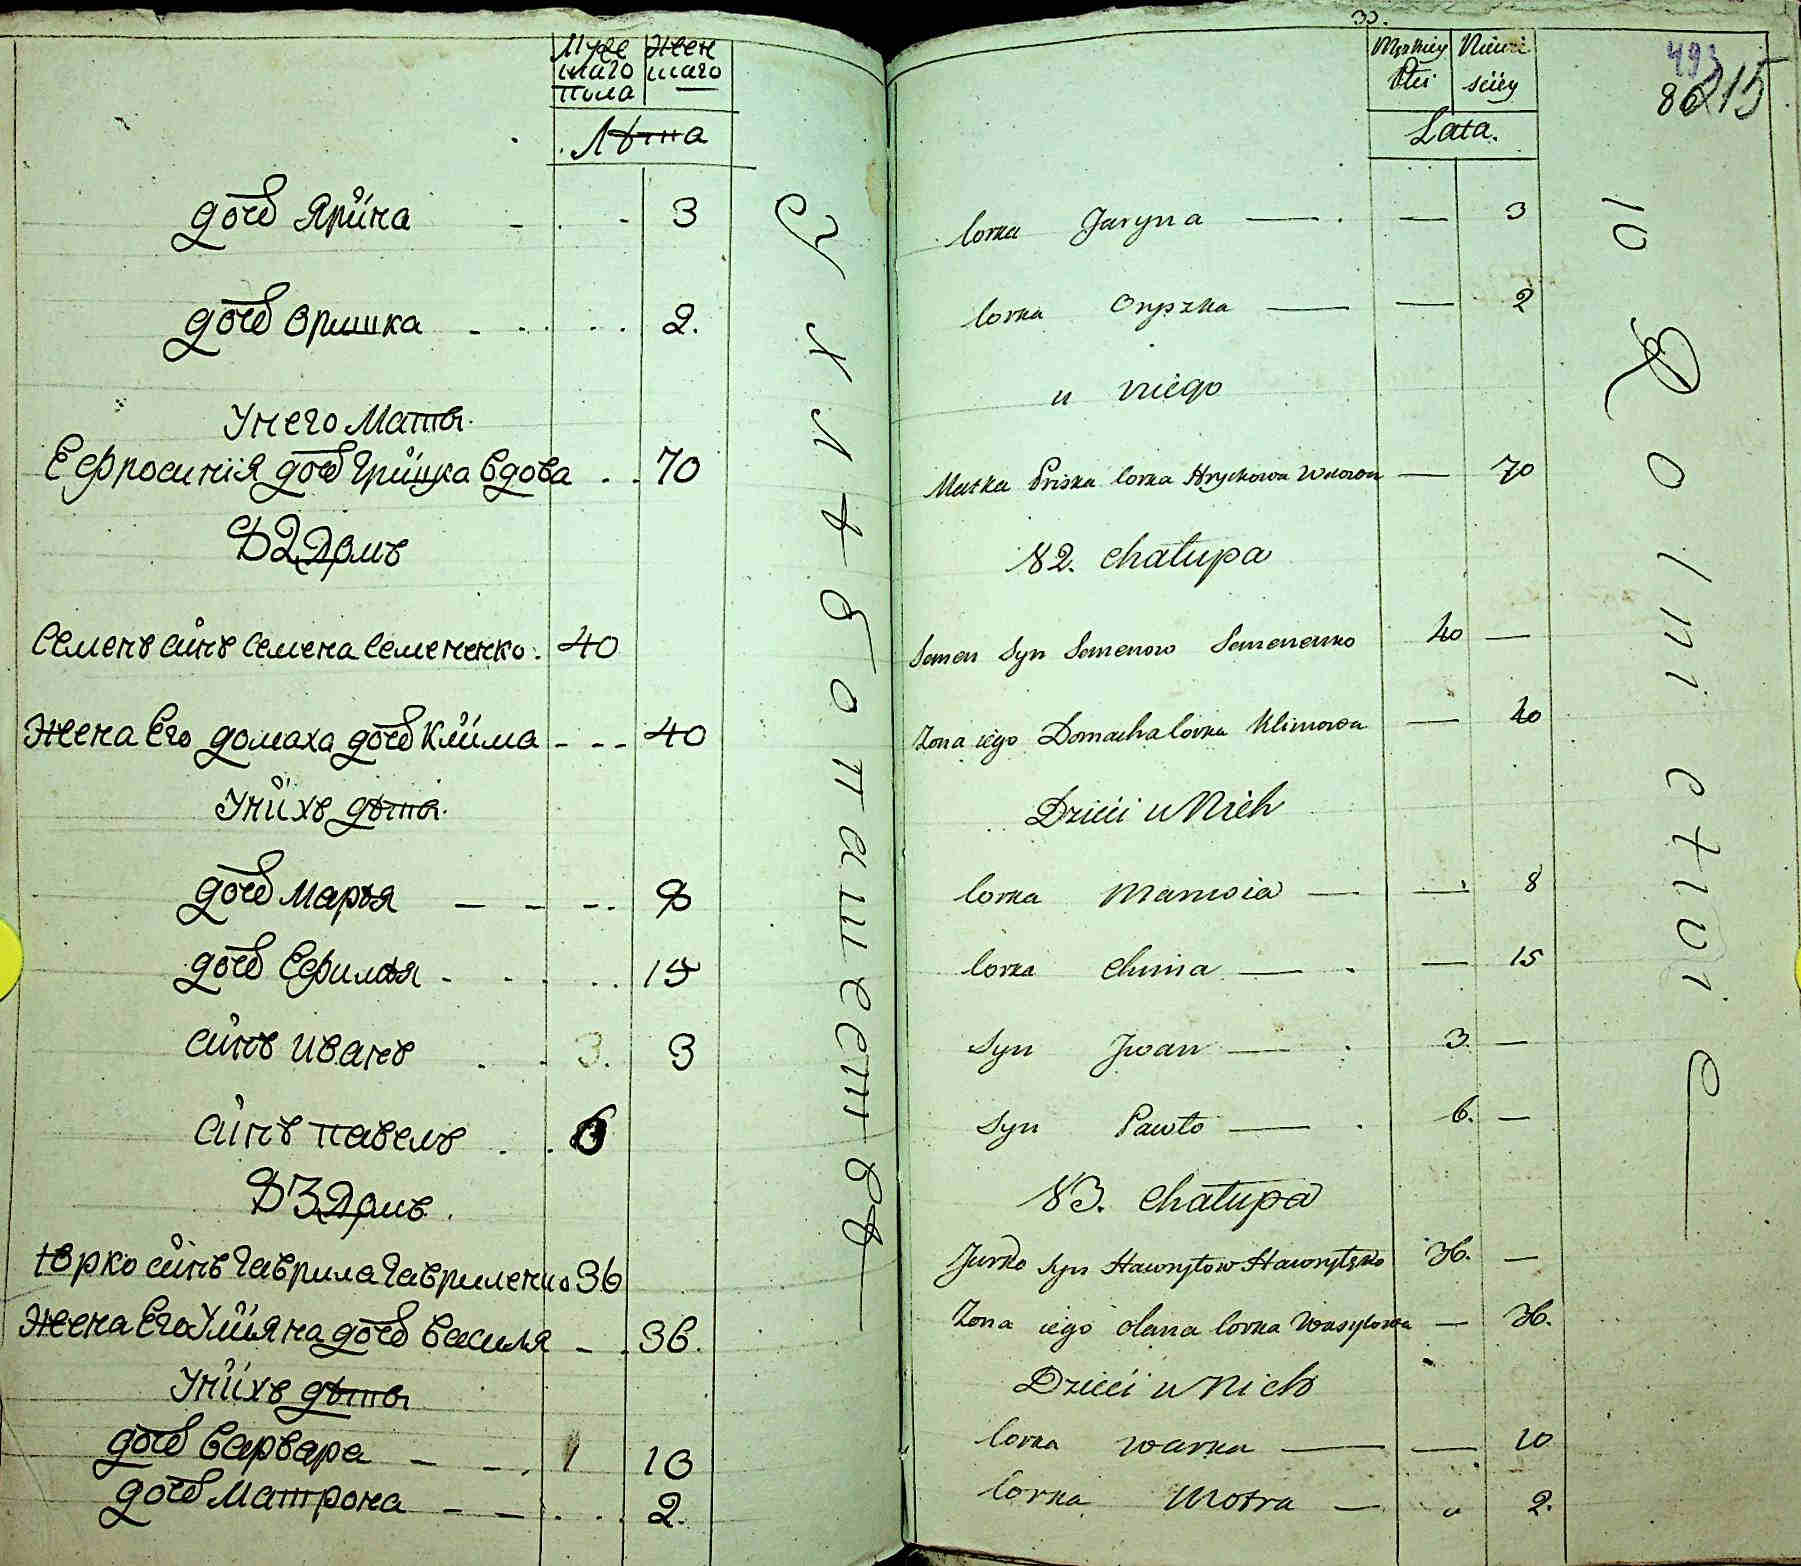 Муже Жен
скаго скаго
пола
Лѣта
дочь Ярина 3
дочь Оришка 2.
У него Мать
Ефросинія дочь Грицка вдова 70
82 Домъ
Семенъ синъ Семена Семененко. 40
Жена Его домаха дочь Клима 40
У нихъ дѣти
дочь Марья 8
дочь Ефимья 15
синъ Иванъ 3. 3
синъ павелъ 6
83 Домъ.
Юрко синъ Гаврила Гавриленко 36
Жена Его Улияна дочь Василя 36.
У нихъ дѣти
дочь Варвара 10
дочь Матрона 2.
хлѣбопашествѣ
33.
Męzkiey Niewi
Płci sciey
Lata.
491
86 215
Corka Jaryna — — 3
Corka Oryszka — — 2
u niego
Matka Priska Corka Hryckowa Wdowa — 70
82. Chałupa
Semen Syn Semenow Semenenko 40 —
Zona iego Domacha Corka Klimowa — 40
Dzieci u Nich
Corka Marusia — — 8
Corka Chima — — 15
Syn Jwan — 3. —
Syn Pawło — 6. —
83. Chałupa
Jurko Syn Hawryłow Hawryłęko 36. —
Zona iego Olana Corka Wasylowa — 36.
Dzieci u Nich
Corka Warka — — 10
Corka Motra — 2.
Rolnictwie